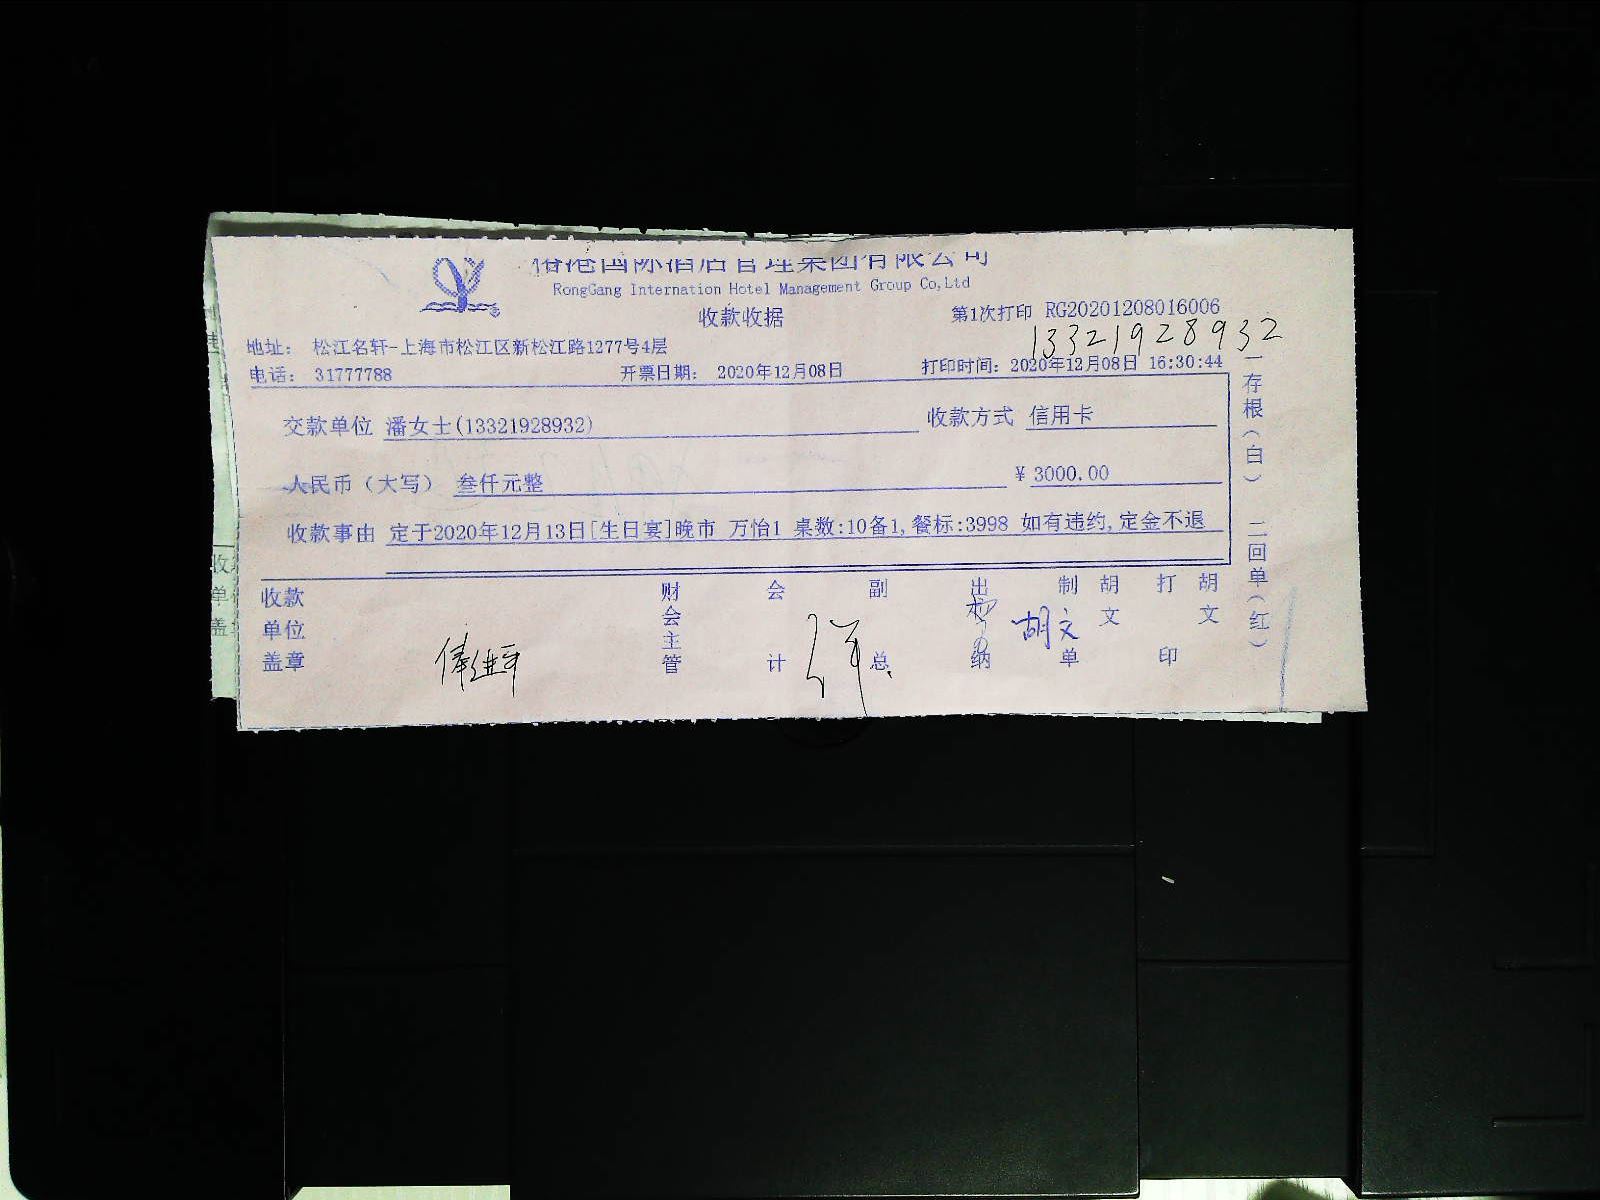 港国际酒店管理集团有限公司
RongGang Internation Hotel Management Group Co,Ltd
收款收据
第1次打印 RG20201208016006
13321928932
地址： 松江名轩-上海市松江区新松江路1277号4层
电话： 31777788 开票日期： 2020年12月08日 打印时间：2020年12月08日 16:30:44
交款单位 潘女士(13321928932) 收款方式 信用卡
人民币（大写） 叁仟元整 ￥3000.00
收款事由 定于2020年12月13日[生日宴]晚市 万怡1 桌数:10备1,餐标:3998 如有违约,定金不退
收款单位盖章 财会主管 会计 副总 出纳 胡文 制单 胡文 打印 胡文
一存根（白） 二回单（红）